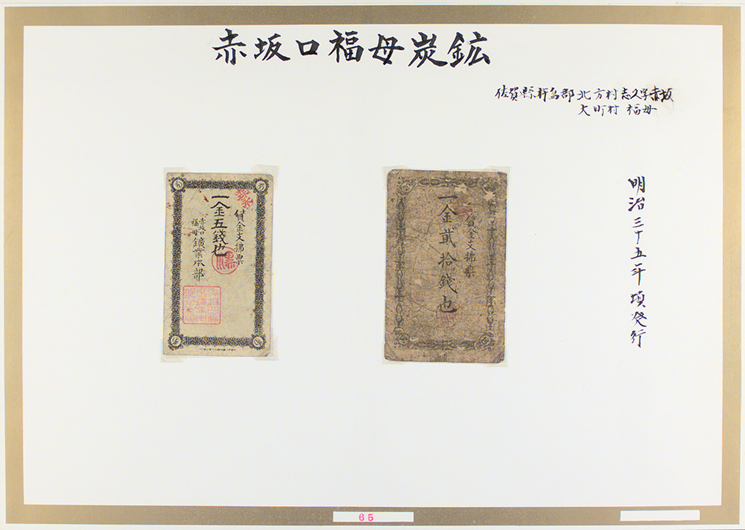 赤坂口福母炭鉱
佐賀縣杵島郡北方村志久字赤坂
大町村 福母
明治三十五年頃発行
賃金支拂票
一金五錢也
赤坂口
福母
鑛業本部
賃金支拂票
一金貳拾錢也
65